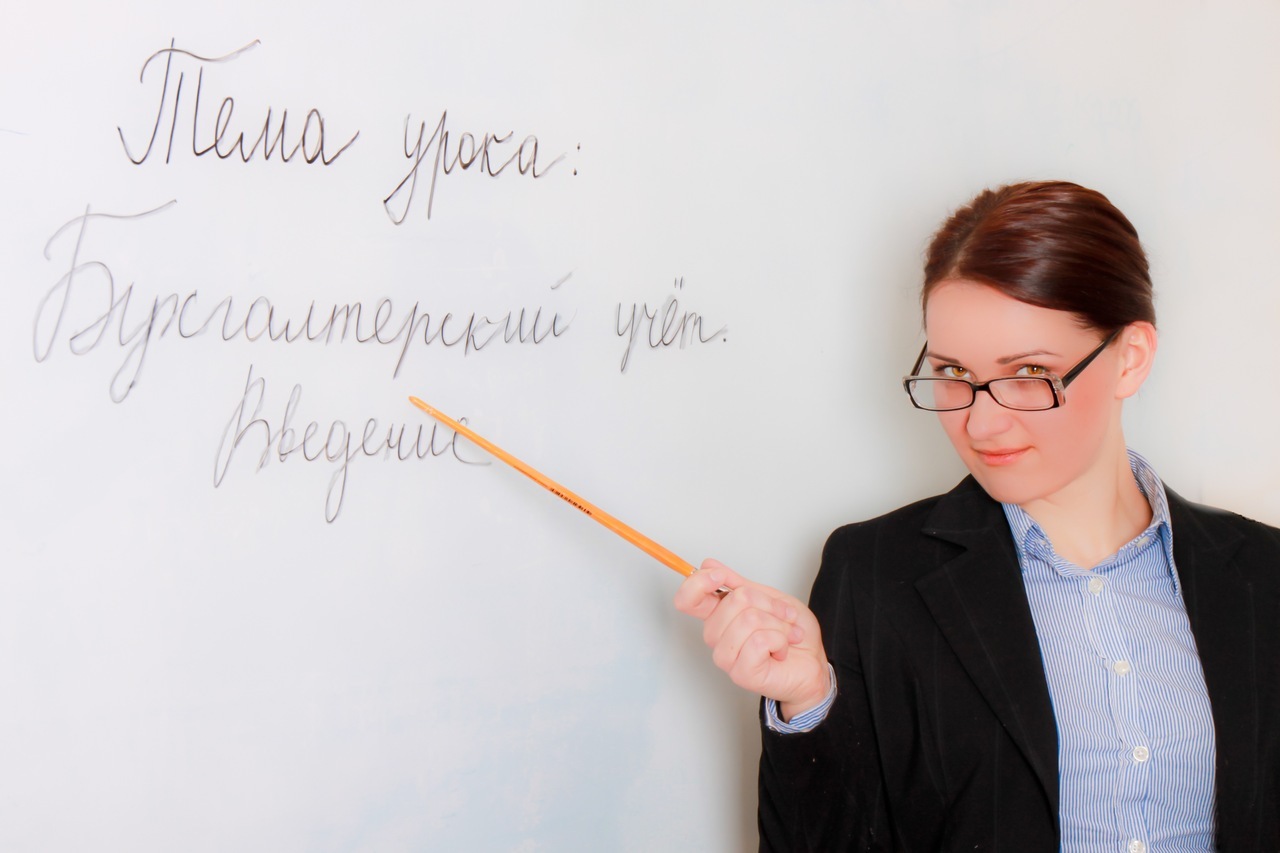 Тема урока:
Бухгалтерский учёт.
Введение